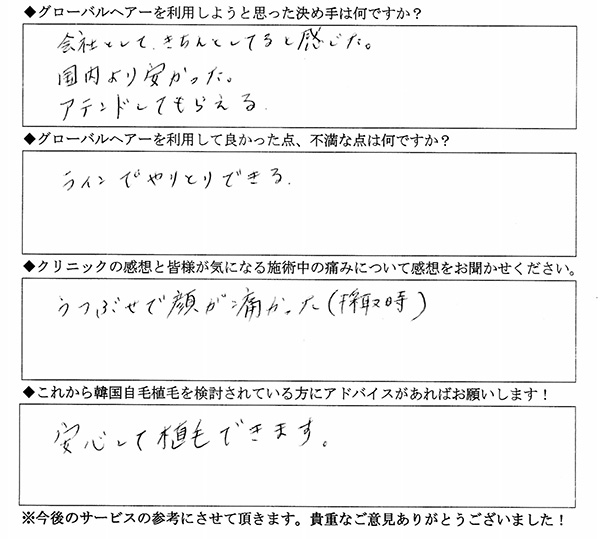 ◆グローバルヘアーを利用しようと思った決め手は何ですか？
会社として、きちんとしてると感じた。
国内より安かった。
アテンドしてもらえる.
◆グローバルヘアーを利用して良かった点、不満な点は何ですか？
ラインでやりとりできる.
◆クリニックの感想と皆様が気になる施術中の痛みについて感想をお聞かせください。
うつぶせで顔が痛かった(採取時)
◆これから韓国自毛植毛を検討されている方にアドバイスがあればお願いします！
安心して植毛できます。
※今後のサービスの参考にさせて頂きます。貴重なご意見ありがとうございました！